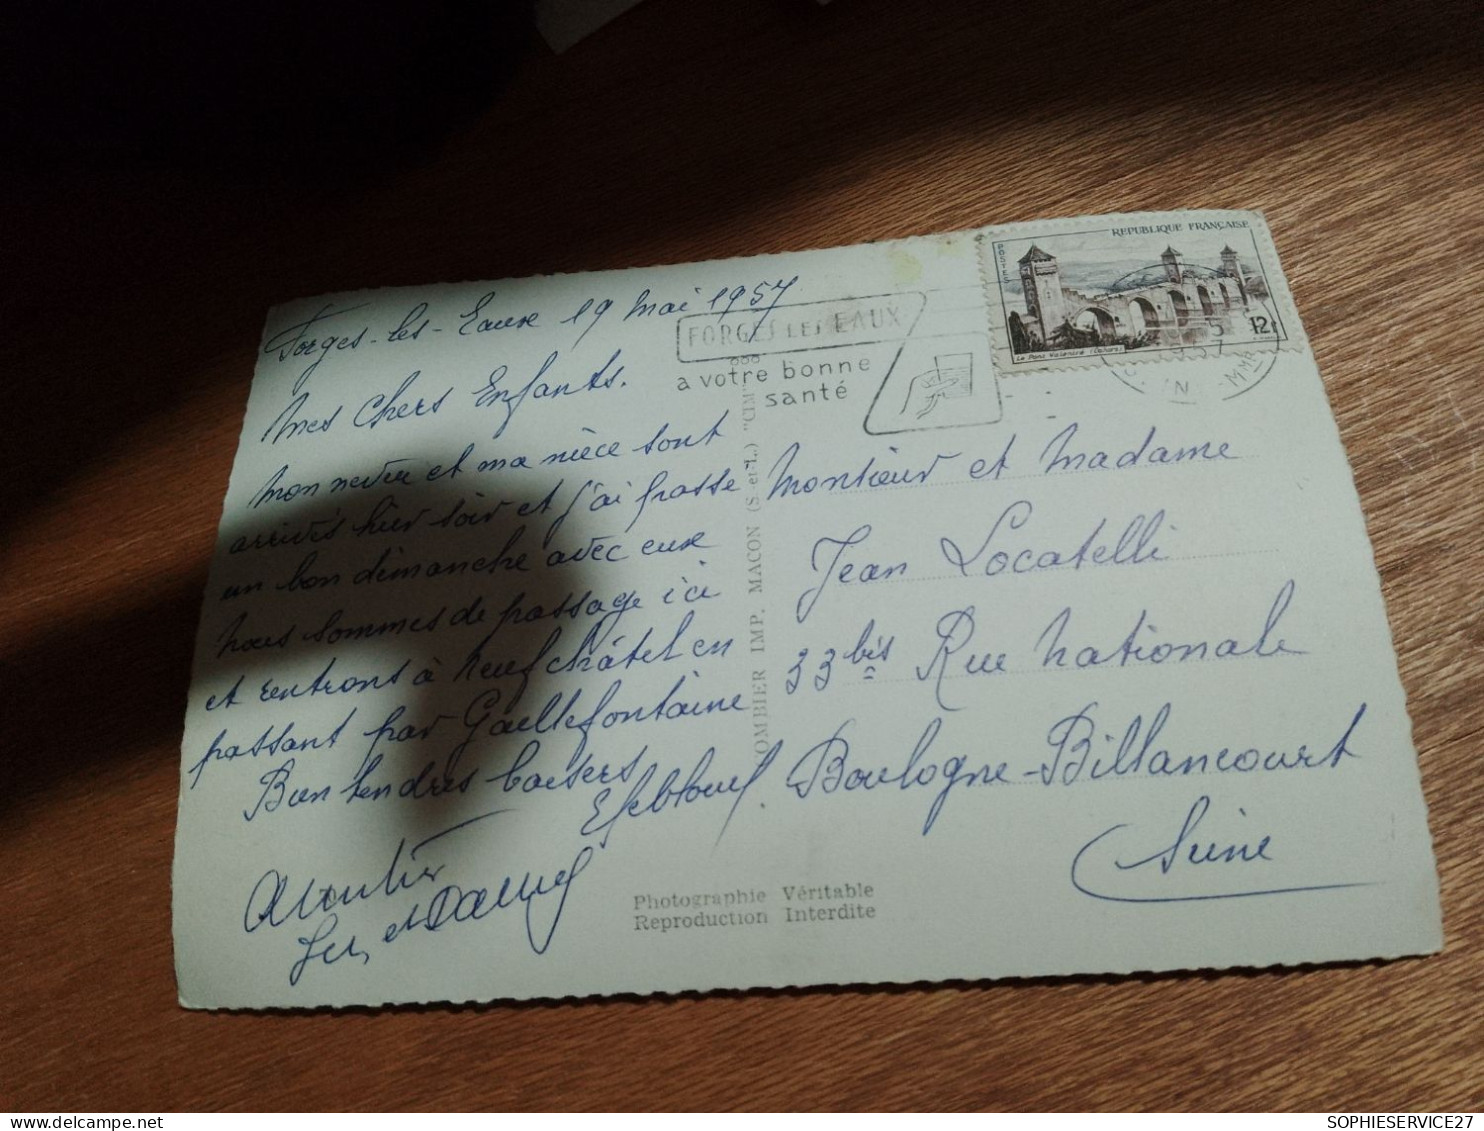 Forges-les-Eaux 19 Mai 1957
Mes Chers Enfants.
Mon neveu et ma nièce sont
arrivés hier soir et j'ai passé
un bon dimanche avec eux
nous sommes de passage ici
et rentrons à Neufchâtel en
passant par Gaillefontaine
Bien tendres baisers
et
FORGES LES EAUX
a votre bonne
santé
REPUBLIQUE FRANÇAISE
POSTES
12F
Le Pont Valentré (Cahors)
COMBIER IMP. MACON (S.-et-L.) "CIM"
Monsieur et Madame
Jean Locatelli
33 bis Rue Nationale
Boulogne-Billancourt
Seine
Photographie Véritable
Reproduction Interdite
SOPHIESERVICE27